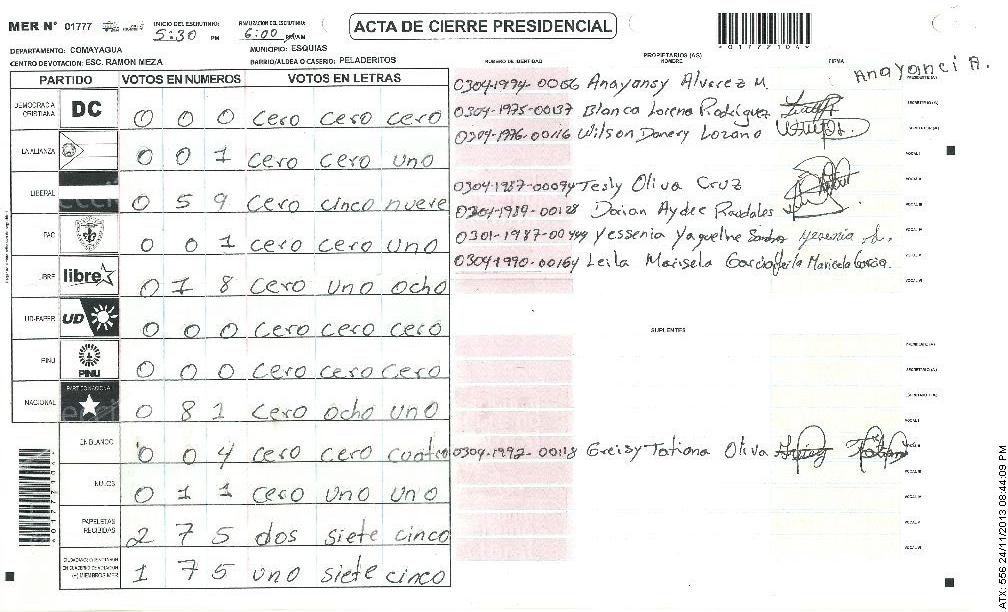 MER N° 01777 INICIO DEL ESCRUTINIO: 5:30 PM FINALIZACION DEL ESCRUTINIO: 6:00 PM
ACTA DE CIERRE PRESIDENCIAL
DEPARTAMENTO: COMAYAGUA MUNICIPIO: ESQUIAS
CENTRO DE VOTACION: ESC. RAMON MEZA BARRIO/ALDEA O CASERIO: PELADERITOS
NUMERO DE IDENTIDAD PROPIETARIOS (AS) NOMBRE FIRMA
PARTIDO VOTOS EN NUMEROS VOTOS EN LETRAS
DEMOCRACIA CRISTIANA DC 0 0 0 cero cero cero
LA ALIANZA 0 0 1 cero cero uno
LIBERAL 0 5 9 cero cinco nueve
PAC 0 0 1 cero cero uno
LIBRE libre 0 1 8 cero uno ocho
UD-FAPER UD 0 0 0 cero cero cero
PINU PINU 0 0 0 cero cero cero
NACIONAL PARTIDO NACIONAL 0 8 1 cero ocho uno
EN BLANCO 0 0 4 cero cero cuatro
NULOS 0 1 1 cero uno uno
PAPELETAS RECIBIDAS 2 7 5 dos siete cinco
(+) MIEMBROS MER 1 7 5 uno siete cinco
0304-1994-00066 Anayansy Alverez M. Anayanci A. PRESIDENTE (A)
0304-1975-00137 Blanca Lorena Rodriguez SECRETARIO (A)
0304-1976-00116 Wilson Danery Lozano
VOCAL I
0304-1987-00094 Tesly Oliva Cruz
0304-1989-00128 Dorian Aydee Raudales
0301-1987-00449 Yessenia Yaqueline Yesenia
0304-1990-00164 Leila Marisela Garcia Leila Maricela Garcia.
SUPLENTES
PRESIDENTE (A)
SECRETARIO (A)
VOCAL I
0304-1992-00118 Greisy Tatiana Oliva
ATX: 556 24/11/2013 08:44:09 PM